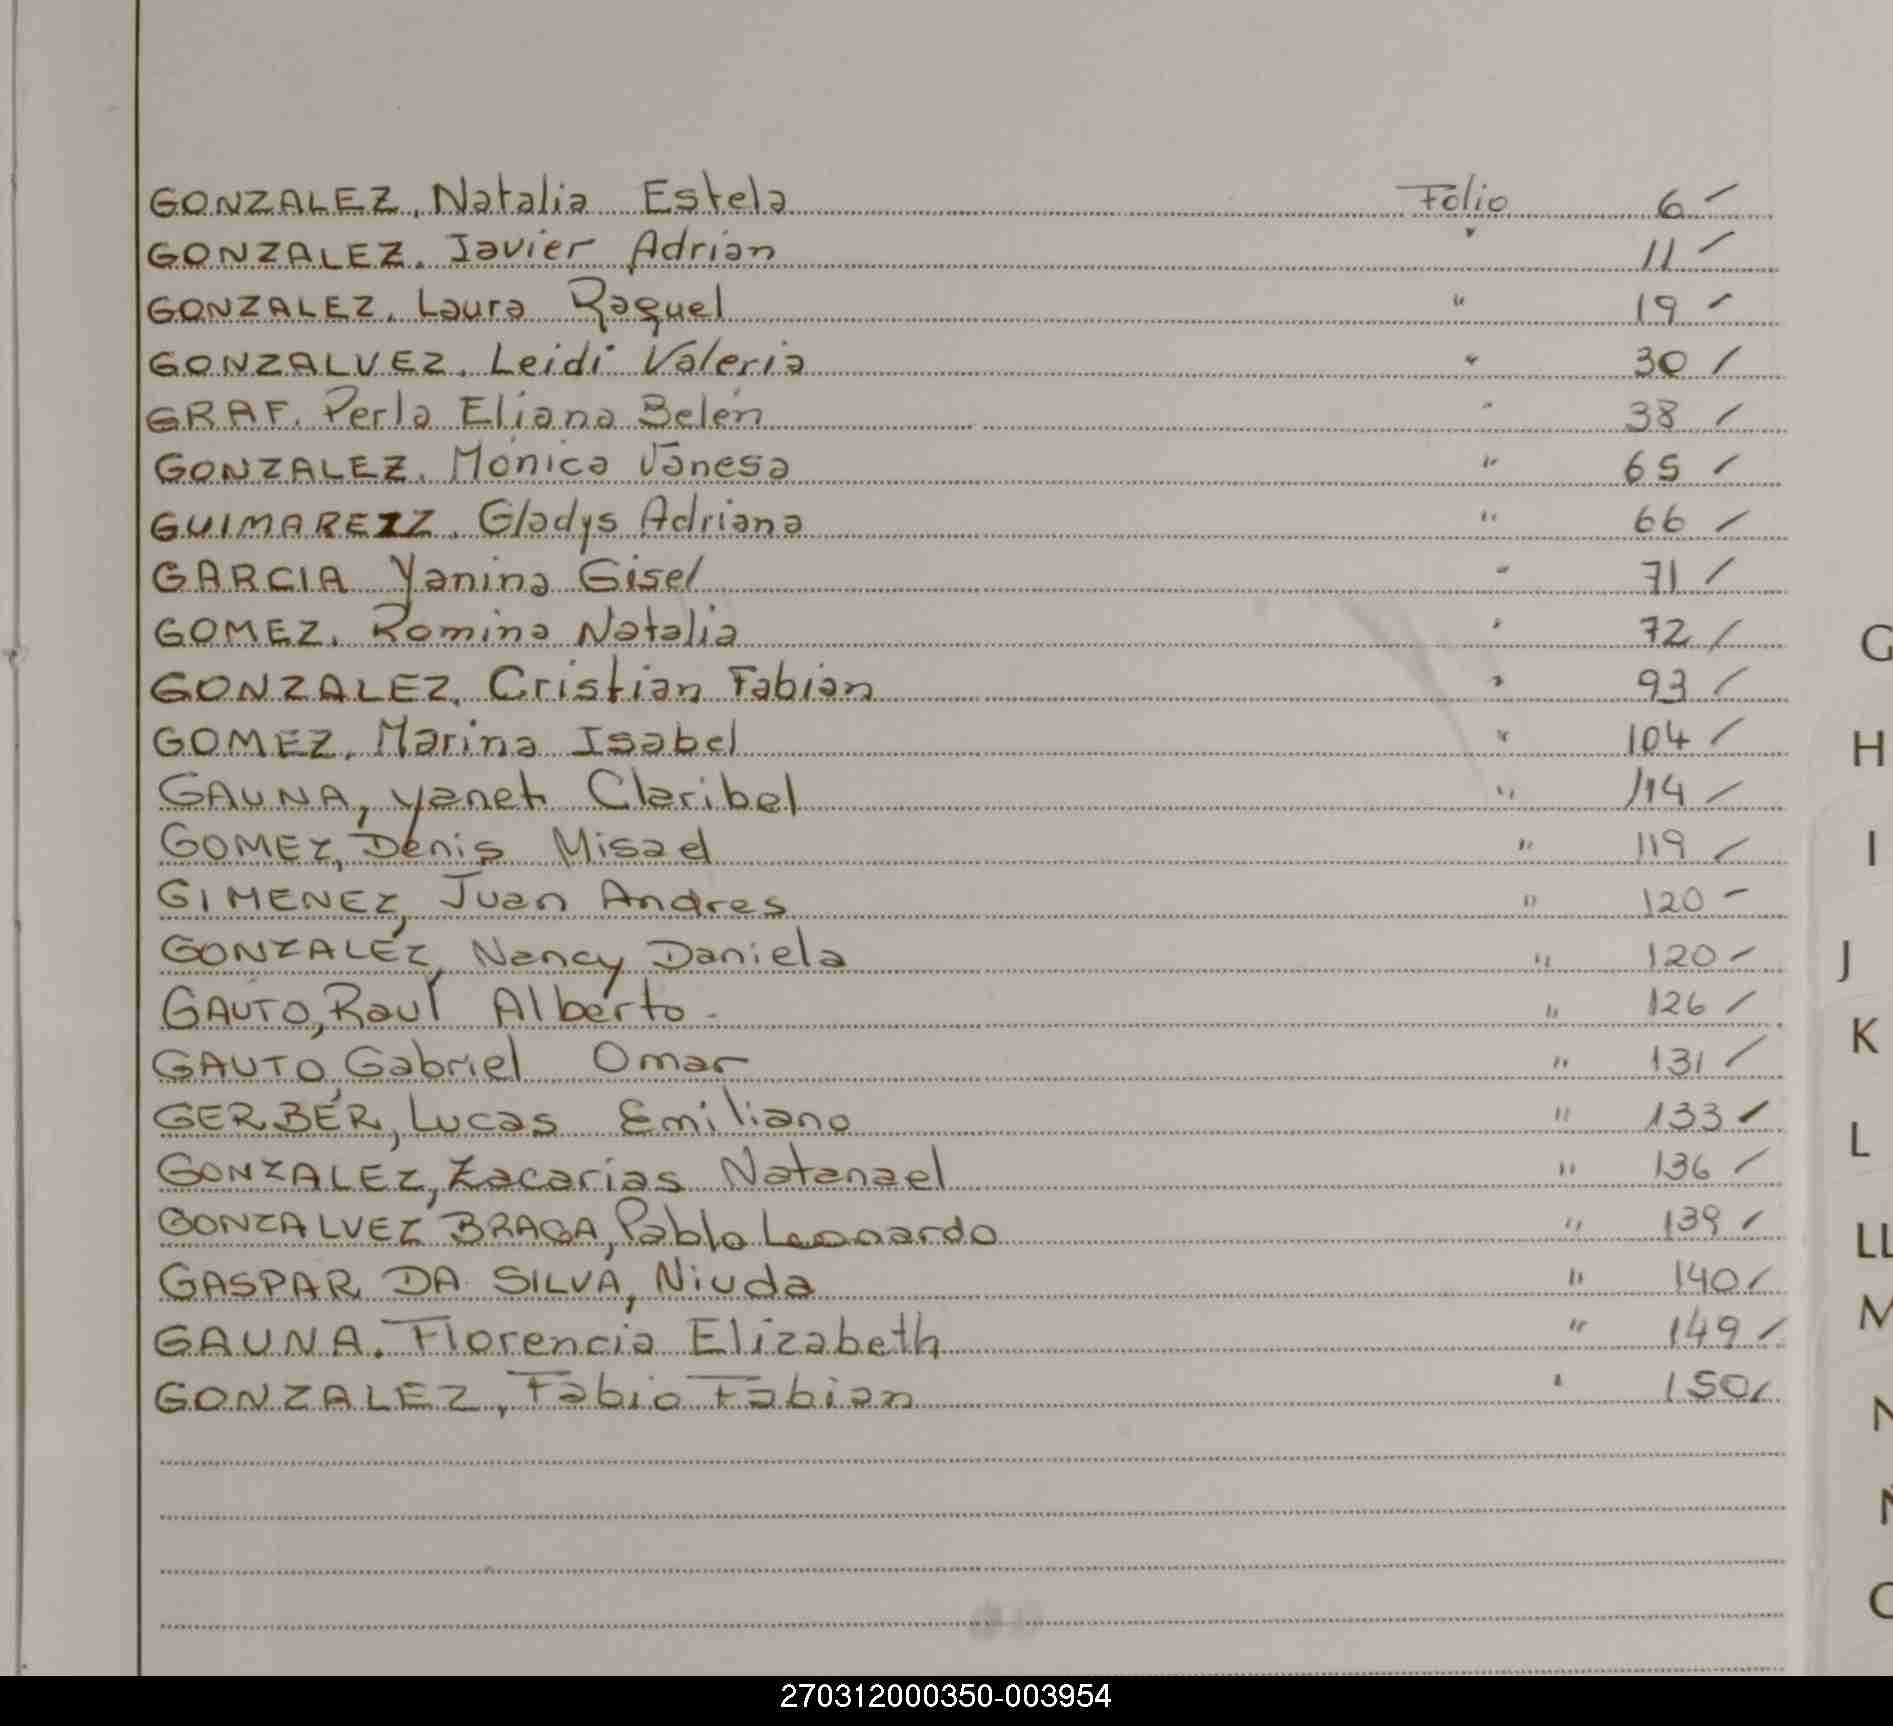 GONZALEZ, Natalia Estela Folio 6 -
GONZALEZ. Javier Adrian " 11 -
GONZALEZ. Laura Raquel " 19 -
GONZALVEZ. Leidi Valeria " 30 /
GRAF. Perla Eliana Belén " 38 /
GONZALEZ. Mónica Vanesa " 65 /
GUIMAREZZ. Gladys Adriana " 66 /
GARCIA Yanina Gisel " 71 /
GOMEZ. Romina Natalia " 72 /
GONZALEZ. Cristian Fabian " 93 /
GOMEZ. Marina Isabel " 104 /
GAUNA, Yanet Claribel " 114 /
GOMEZ, Denis Misael " 119 /
GIMENEZ, Juan Andres " 120 -
GONZALEZ, Nancy Daniela " 120 -
GAUTO, Raul Alberto - " 126 /
GAUTO, Gabriel Omar " 131 /
GERBER, Lucas Emiliano " 133 /
GONZALEZ, Zacarias Natanael " 136 /
GONZALVEZ BRAGA, Pablo Leonardo " 139 /
GASPAR DA SILVA, Niuda " 140 /
GAUNA. Florencia Elizabeth " 149 /
GONZALEZ, Fabio Fabian " 150 /
G
H
I
J
K
L
LL
M
N
270312000350-003954